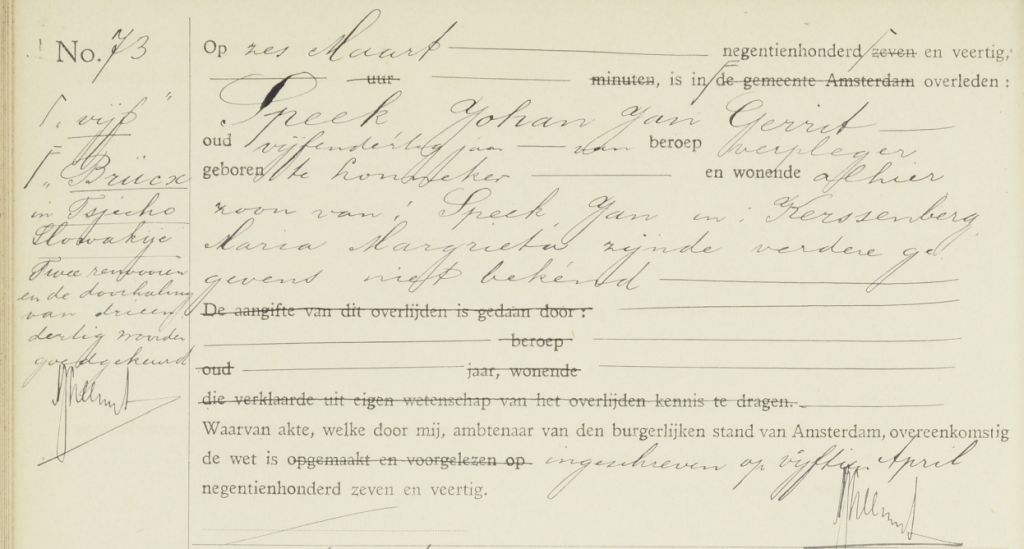 No. 73
Op zes Maart negentienhonderd zeven en veertig,
uur minuten, is in de gemeente Amsterdam overleden :
Speek Johan Jan Gerrit
oud vijfendertig jaar van beroep verpleger
geboren te Lonneker en wonende alhier
zoon van: Speek, Jan en: Kerssenberg
Maria Margrieta zijnde verdere ge-
gevens niet bekend
De aangifte van dit overlijden is gedaan door :
beroep
oud jaar, wonende
die verklaarde uit eigen wetenschap van het overlijden kennis te dragen.
Waarvan akte, welke door mij, ambtenaar van den burgerlijken stand van Amsterdam, overeenkomstig
de wet is opgemaakt en voorgelezen op ingeschreven op vijftien April
negentienhonderd zeven en veertig.
„ vijf "
„ Brücx
in Tsjecho
Slowakije
Twee renvooien
en de doorhaling
van drieen
dertig woorden
goedgekeurd